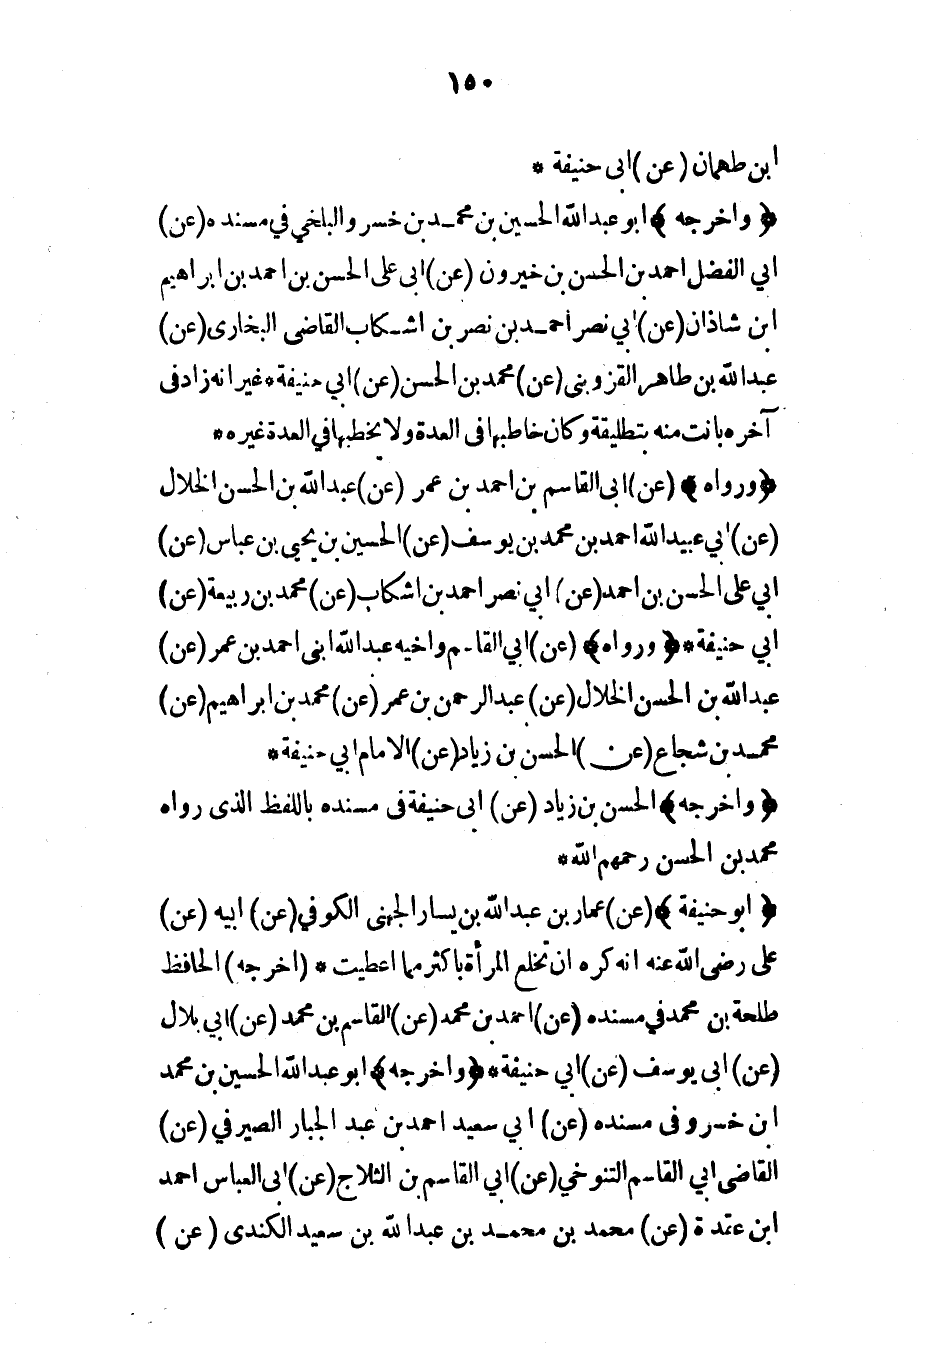 ١٥٠
ابن طهمان (عن) ابى حنيفة *
﴿ واخرجه ﴾ ابو عبدالله الحسين بن محمد بن خسرو البلخي في مسنده (عن)
ابي الفضل احمد بن الحسن بن خيرون (عن) ابى على الحسن بن احمد بن ابراهيم
ابن شاذان (عن) ابي نصر احمد بن نصر بن اشكاب القاضى البخارى (عن)
عبدالله بن طاهر القزوينى (عن) محمد بن الحسن (عن) ابي حنيفة * غير انه زاد فى
آخره بانت منه بتطليقة وكان خاطبها فى العدة ولا يخطبها في العدة غيره *
﴿ ورواه ﴾ (عن) ابى القاسم بن احمد بن عمر (عن) عبدالله بن الحسن الخلال
(عن) ابي عبيدالله احمد بن محمد بن يوسف (عن) الحسين بن يحيى بن عباس (عن)
ابي على الحسن بن احمد (عن) ابي نصر احمد بن اشكاب (عن) محمد بن ربيعة (عن)
ابي حنيفة * ﴿ ورواه ﴾ (عن) ابي القاسم واخيه عبدالله ابنى احمد بن عمر (عن)
عبدالله بن الحسن الخلال (عن) عبدالرحمن بن عمر (عن) محمد بن ابراهيم (عن)
محمد بن شجاع (عن) الحسن بن زياد (عن) الامام ابي حنيفة *
﴿ واخرجه ﴾ الحسن بن زياد (عن) ابى حنيفة فى مسنده باللفظ الذى رواه
محمد بن الحسن رحمهم الله *
﴿ ابو حنيفة ﴾ (عن) عمار بن عبدالله بن يسار الجهنى الكوفي (عن) ابيه (عن)
على رضى الله عنه انه كره ان تخلع المرأة باكثر مما اعطيت * (اخرجه) الحافظ
طلحة بن محمد في مسنده (عن) احمد بن محمد (عن) القاسم بن محمد (عن) ابي بلال
(عن) ابى يوسف (عن) ابي حنيفة * ﴿ واخرجه ﴾ ابو عبدالله الحسين بن محمد
ابن خسرو فى مسنده (عن) ابي سعيد احمد بن عبد الجبار الصيرفي (عن)
القاضى ابي القاسم التنوخي (عن) ابي القاسم بن الثلاج (عن) ابى العباس احمد
ابن عقدة (عن) محمد بن محمد بن عبدالله بن سعيد الكندى (عن)